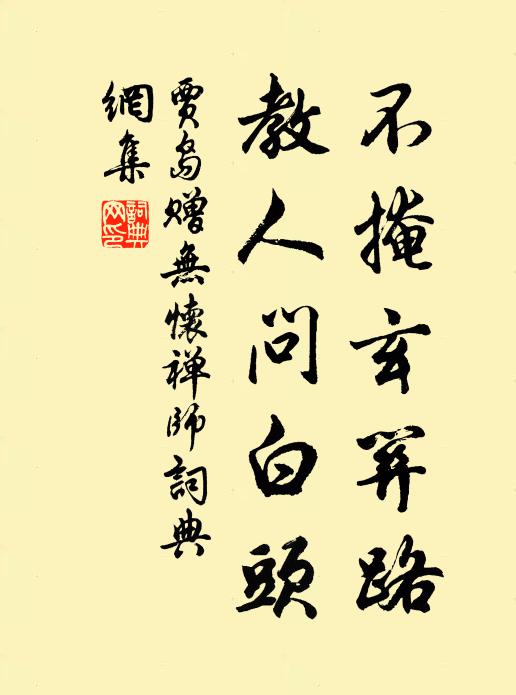 不掩玄關路
教人問白頭
賈島贈無懷禅師詞典
網集
詞典
网印